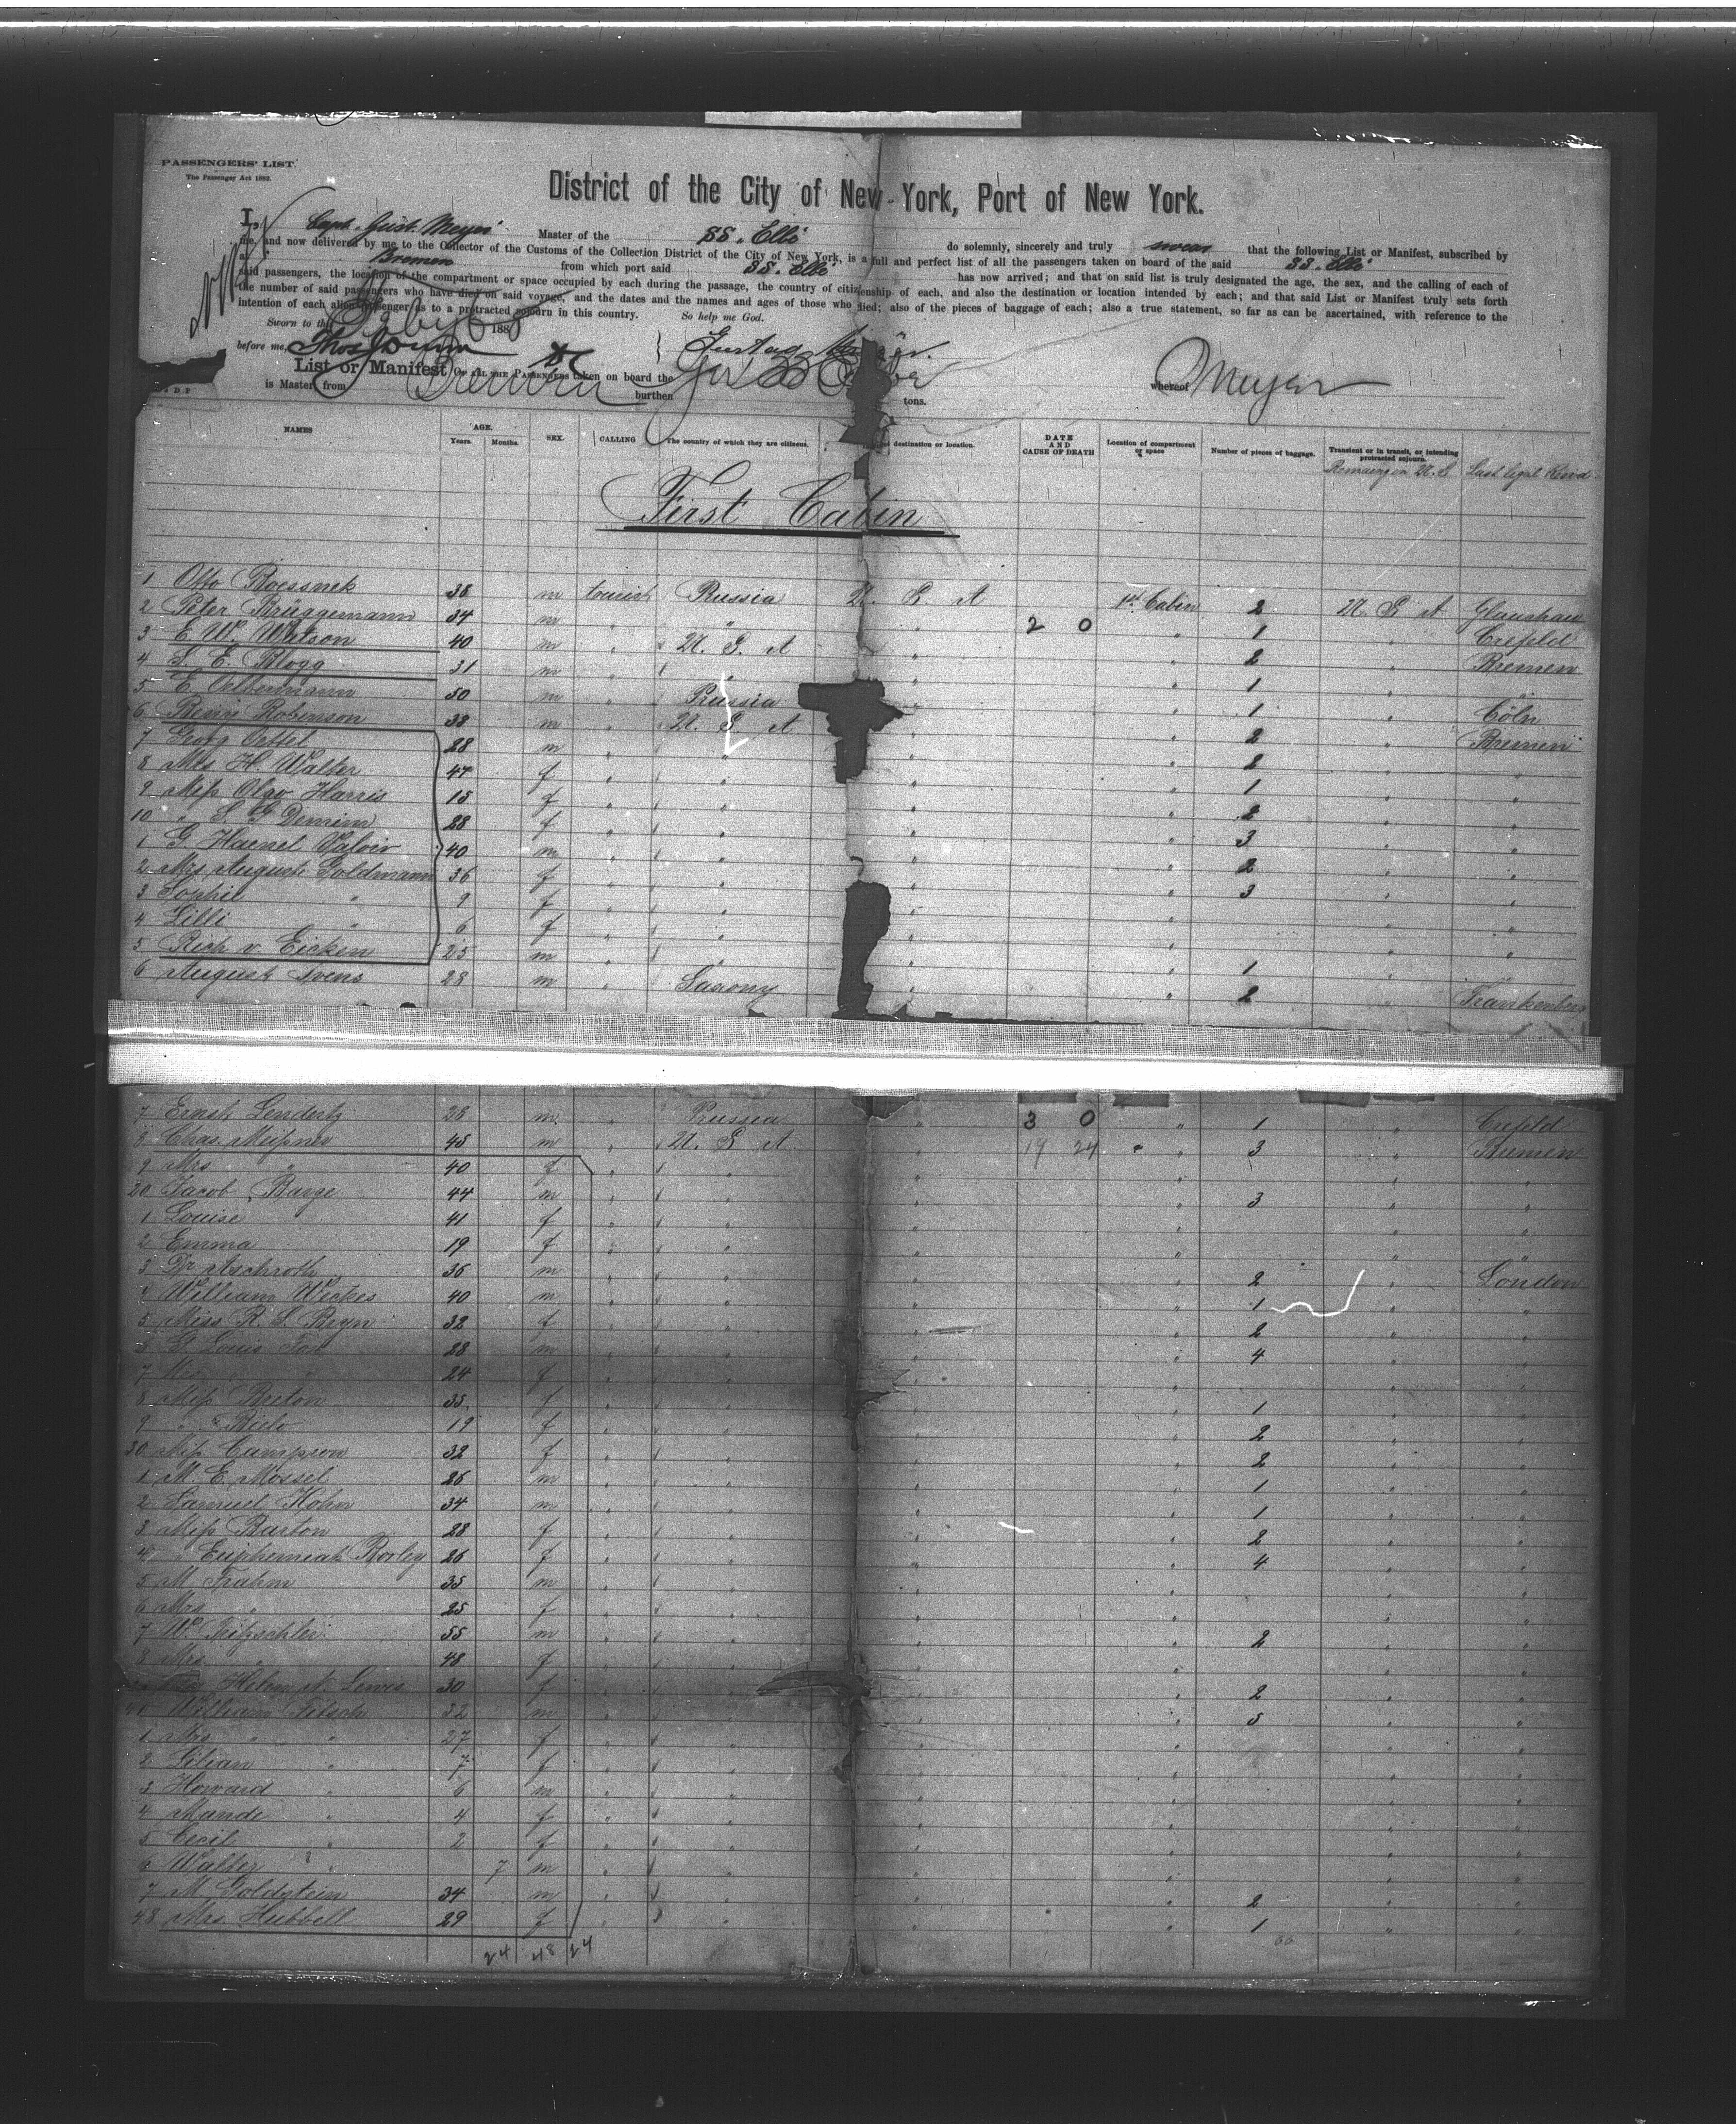 PASSENGERS' LIST.
The Passenger Act 1882.
District of the City of New-York, Port of New York.
I, Capt. Gust. Meyer Master of the SS. Elbe do solemnly, sincerely and truly swear that the following List or Manifest, subscribed by
me, and now delivered by me to the Collector of the Customs of the Collection District of the City of New York, is a full and perfect list of all the passengers taken on board of the said SS. Elbe
Bremen from which port said SS. Elbe has now arrived; and that on said list is truly designated the age, the sex, and the calling of each of
said passengers, the location of the compartment or space occupied by each during the passage, the country of citizenship of each, and also the destination or location intended by each; and that said List or Manifest truly sets forth
the number of said passengers who have died on said voyage, and the dates and the names and ages of those who died; also of the pieces of baggage of each; also a true statement, so far as can be ascertained, with reference to the
intention of each alien passenger as to a protracted sojourn in this country. So help me God.
Sworn to this 1888
before me,
List or Manifest OF ALL THE PASSENGERS taken on board the whereof Meyer
is Master from Bremen burthen tons.
NAMES AGE. Years. Months. SEX. CALLING The country of which they are citizens. destination or location. DATE AND CAUSE OF DEATH Location of compartment or space Number of pieces of baggage. Transient or in transit, or intending protracted sojourn.
First Cabin
1 Otto 38 m tourist Prussia U. S. A 1st Cabin 2 U S A
2 Peter Brüggemann 34 m " " " 2 0 " 1 " Crefeld
3 E. W. Watson 40 m " U. S. A " " 2 " Bremen
4 S. E. Blogg 31 m " " " " 1 " "
5 E. 50 m " Prussia " 1 " Cöln
6 Benj. Robinson 38 m " U. S. A " " 2 " Bremen
7 Georg Oettel 28 m " " " " 2 " "
8 Mrs H. Walter 47 f " " " " 1 " "
9 Miss Olga Harris 15 f " " " " 2 " "
10 " S. G. 28 f " " " " 3 " "
1 G. Haenel 40 m " " " " 2 " "
2 Mrs Auguste Goldmann 36 f " " " " 3 " "
3 Sophie " 9 f " " " " " "
4 Lilli " 6 f " " " " " "
5 Rich v. Eicken 25 m " " " " 1 " "
6 August 28 m " Saxony " " 2 " Frankenberg
7 Ernst Lendertz 28 m " Prussia " 3 0 " 1 " Crefeld
8 Chas. Meissner 45 m " U. S. A " 19 24 " 3 " Bremen
9 Mrs " 40 f " " " " " "
20 Jacob Barge 44 m " " " " 3 " "
1 Louise 41 f " " " " " "
2 Emma 19 f " " " " " "
3 Dr Aschroth 36 m " " " " 2 " London
4 William Weekes 40 m " " " " 1 " "
5 Miss R. S. 32 f " " " " 2 " "
6 G. Louis 28 m " " " " 4 " "
7 Mrs " 24 f " " " " " "
8 Miss 35 f " " " " 1 " "
9 " 19 f " " " " 2 " "
30 Miss 32 f " " " " 2 " "
1 M. E. Mossel 26 m " " " " 1 " "
2 Samuel Kohn 34 m " " " " 1 " "
3 Miss Burton 28 f " " " " 2 " "
" Euphemiah 26 f " " " " 4 " "
5 M 35 m " " " " " "
6 Mrs " 25 f " " " " " "
7 W. 55 m " " " " 2 " "
8 Mrs " 48 f " " " " " "
Helen A. Lewes 30 f " " " " 2 " "
William Fitsch 32 m " " " " 5 " "
1 Mrs " 27 f " " " " " "
2 Lilian " 7 f " " " " " "
3 Howard " 6 m " " " " " "
4 Maude " 4 f " " " " " "
5 Cecil " 2 f " " " " " "
6 Walter " 7 m " " " " " "
7 M Goldstein 34 m " " " " 2 " "
48 Mrs Hubbell 29 f " " " " 1 " "
24 48 24 66